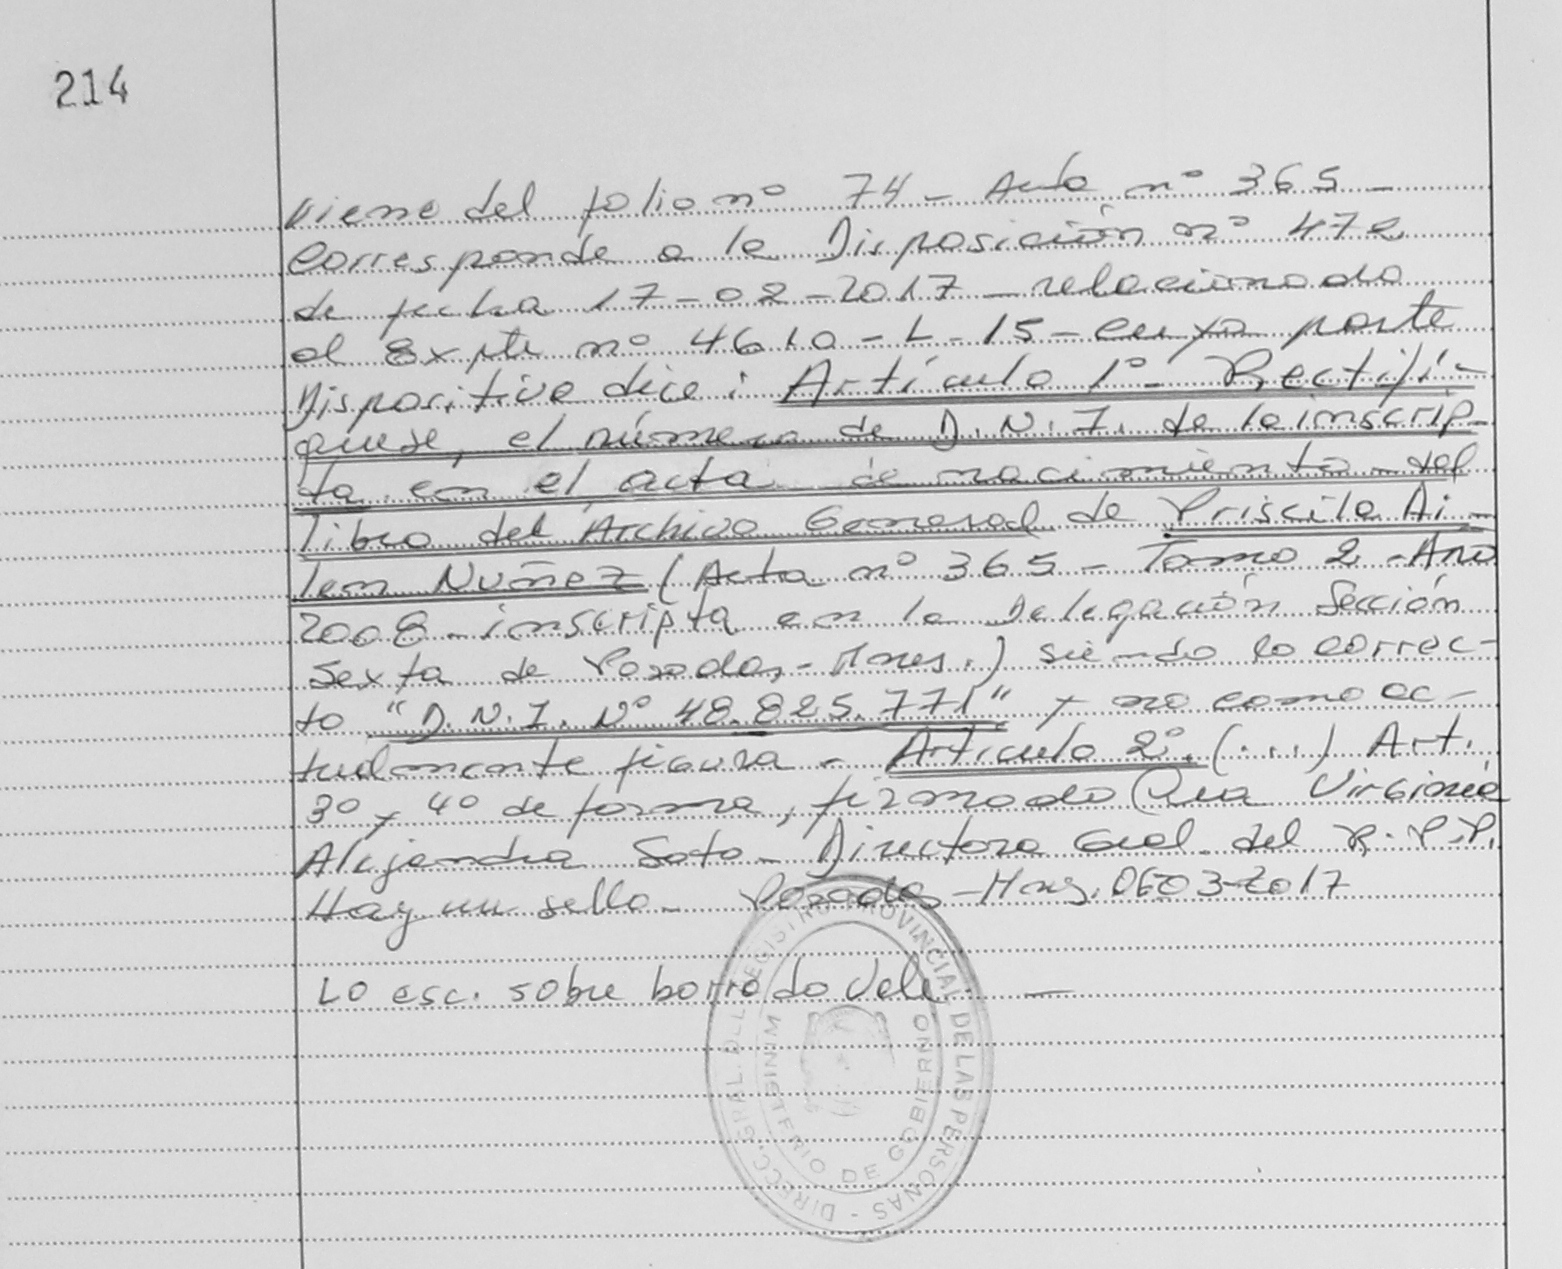 214
Viene del folio nº 74 - Acta nº 365 -
Corresponde a la Disposición nº 472
de fecha 17-02-2017 - relacionado
al Expte nº 4610-L-15- cuya parte
Dispositiva dice: Artículo 1º- Rectifí-
quese, el número de D.N.I. de la inscrip-
ta en el acta de nacimiento del
libro del Archivo General de Priscila Ai-
len Nuñez (Acta nº 365 - Tomo 2 - Año
2008 - inscripta en la Delegación Sección
Sexta de Posadas, - Mnes.) siendo lo correc-
to "D.N.I. Nº 48.825.771" y no como ac-
tualmente figura - Artículo 2º. (...) Art.
3º y 4º de forma, firmado Dra Virginia
Alejandra Soto - Directora Gral. del R.P.P.
Hay un sello - Posadas - Mnes. 0603-2017
Lo esc. sobre borrado Vale. -
DIRECC. GRAL. DEL REGISTRO PROVINCIAL DE LAS PERSONAS -
MINISTERIO DE GOBIERNO